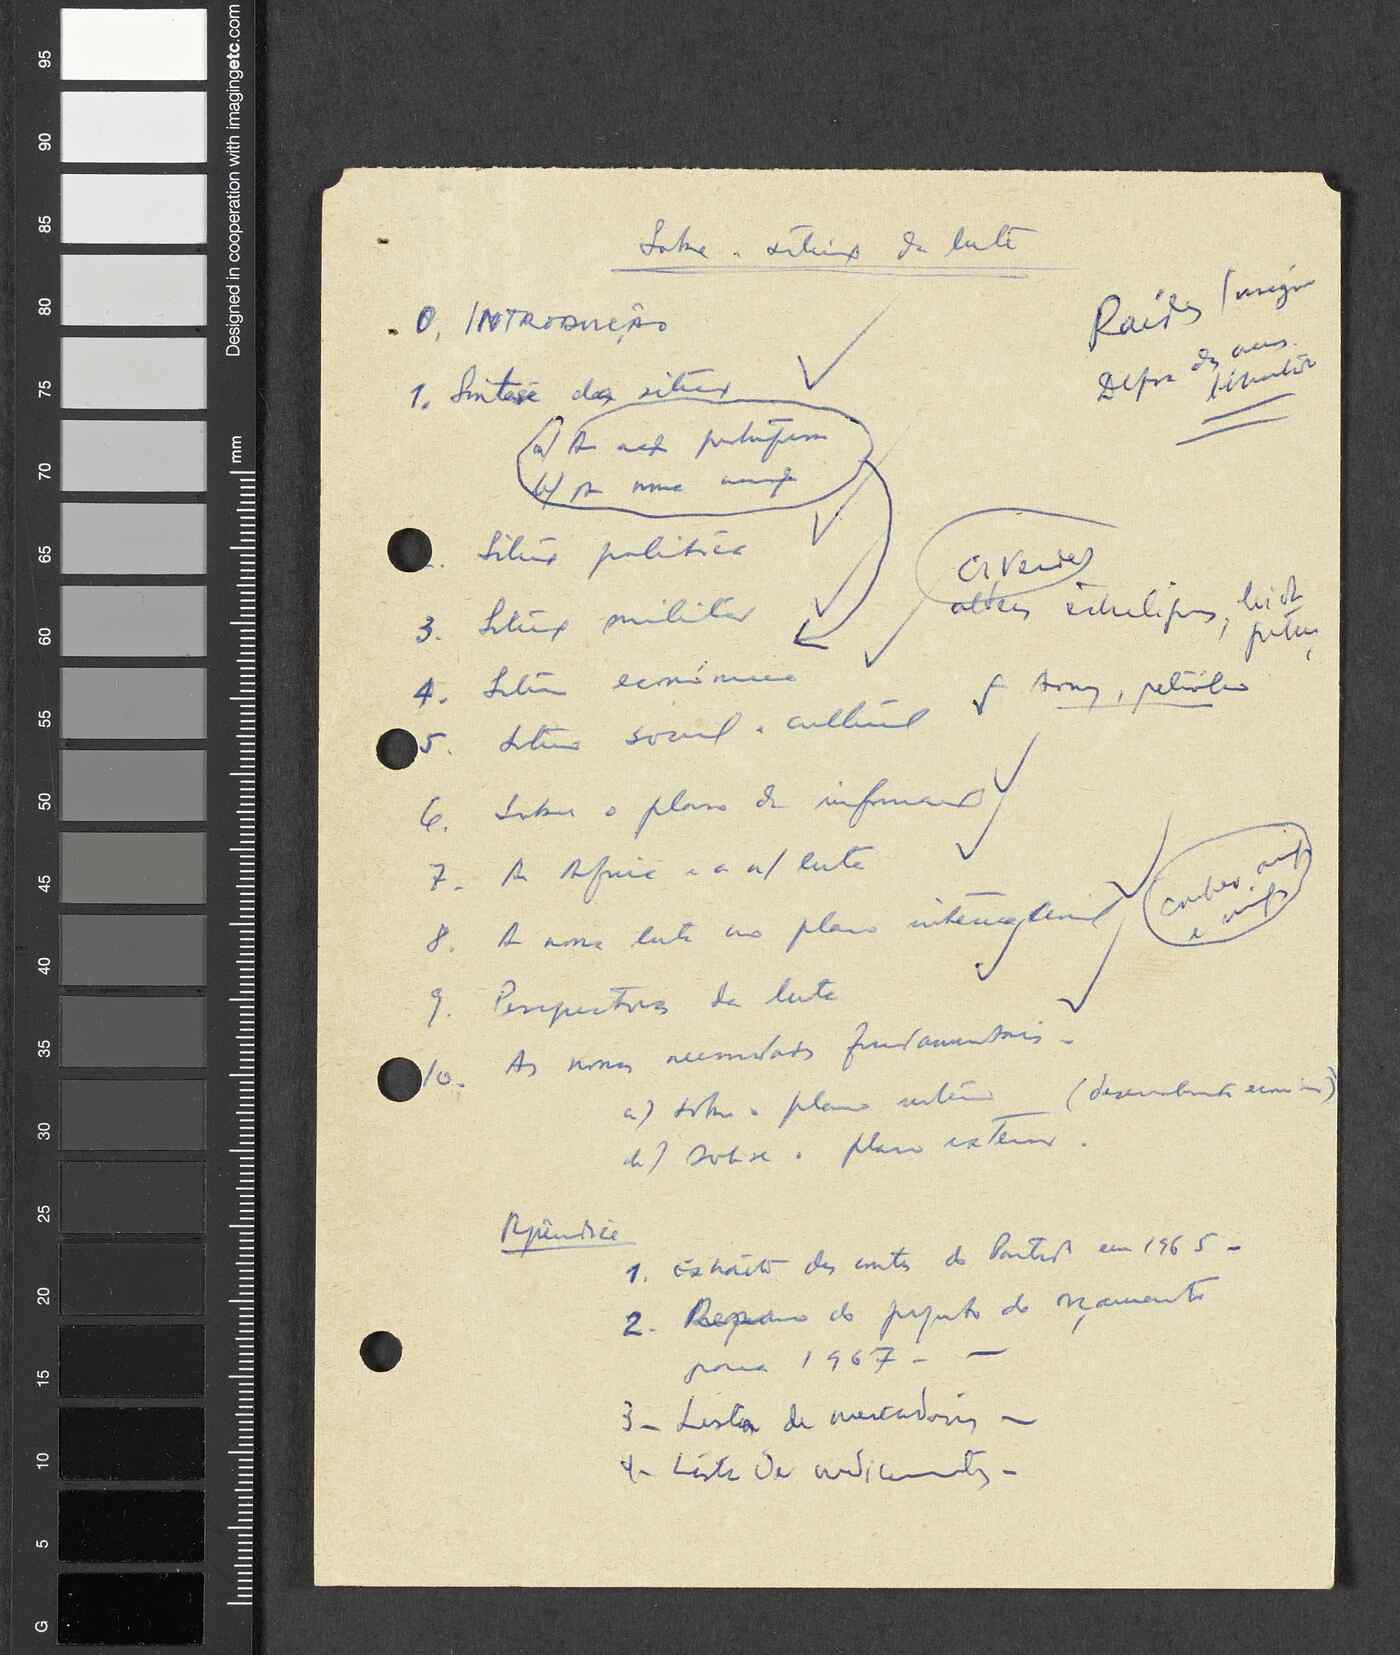 Sobre a situação da luta
0. INTRODUÇÃO
1. Síntese da situação
a) A acção portuguesa
b) A nossa acção
. Situação política
3. Situação militar
4. Situação económica
5. Situação social e cultural
6. Sobre o plano da informação
7. A Africa e a n/ luta
8. A nossa luta no plano internacional
9. Perspectivas da luta
10. As nossas necessidades fundamentais -
a) Sobre o plano interno (desenvolvimento económico)
b) Sobre o plano externo.
Apêndice
1. Extracto das contas do Partido em 1965 -
2. Resumo do projecto do orçamento
para 1967 -
3 - Lista de mercadorias -
4 - Lista de medicamentos -
Raids
C. Verde
petróleo
Designed in cooperation with imagingetc.com
mm
95
90
85
80
75
70
65
60
55
50
45
40
35
30
25
20
15
10
5
G